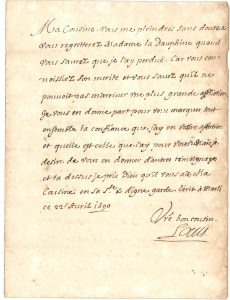 Ma Cousine. Vous me pleindrés sans doute et
vous regretterez Madame la Dauphine quand
vous saurez que je l'ay perdue. Car vous con
noissiez son merite et vous savez qu'il ne
pouvoit pas m'arriver une plus grande affliction
Je vous en donne part pour vous marquer tout
ensemble la confiance que j'ay en vostre affection
et quelle est celle que j'ay pour vous
desire de vous en donner d'autres témoignages
et la dessus je prie Dieu qu'il vous ait Ma
Cousine en sa Ste et digne garde. Escrit à Marli
ce 22e Avril 1690
Vre bon cousin
Louis